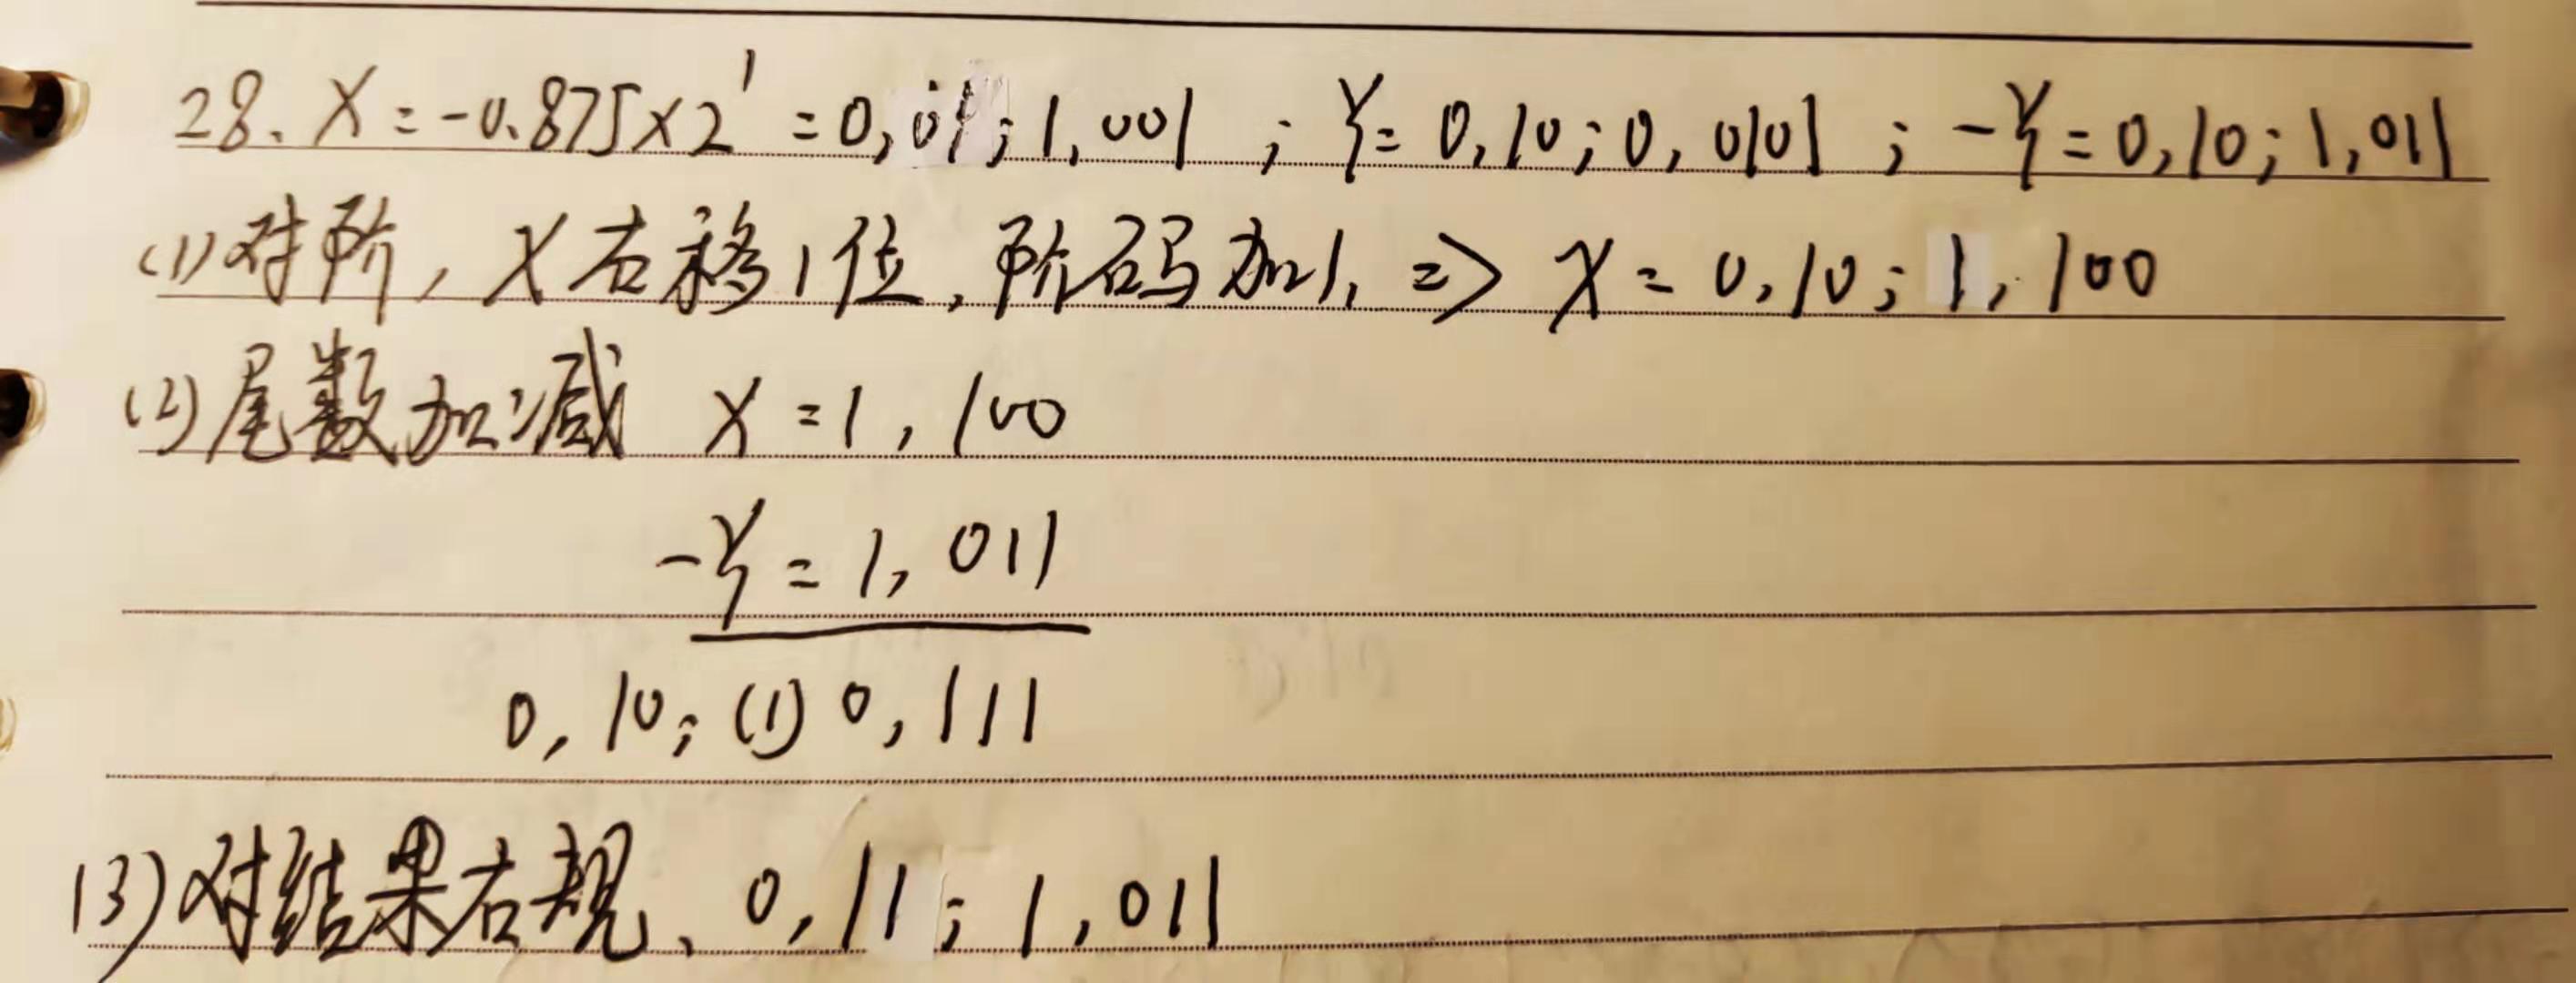 28. X=-0.875×2¹=0,01;1,001 ; Y=0,10;0,0101 ; -Y=0,10;1,011
(1)对阶,X右移1位,阶码加1, => X=0,10;1,100
(2)尾数加减 X=1,100
-Y=1,011
0,10;(1)0,111
(3)对结果右规、0,11;1,011